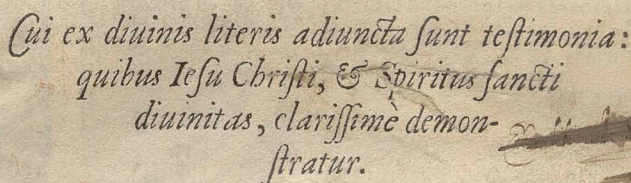 Cui ex diuinis literis adiuncta ſunt teſtimonia:
quibus Ieſu Chriſti, & Spiritus ſancti
diuinitas, clariſſimè demon-
ſtratur.